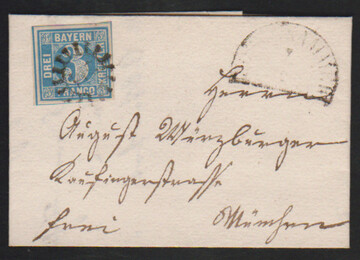 BAYERN
DREI
3
KREUZER
FRANCO
Herrn
August Würzburger
Kaufingerstrasse
frei München